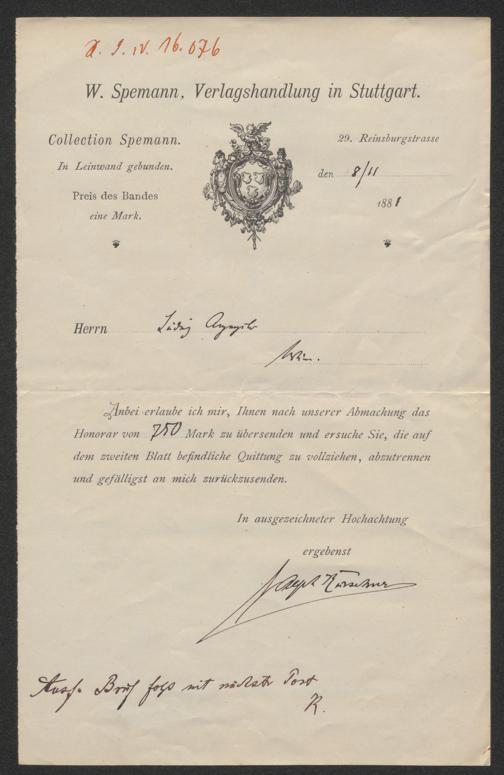 I. N. 16.076
W. Spemann, Verlagshandlung in Stuttgart.
Collection Spemann.
In Leinwand gebunden.
Preis des Bandes
eine Mark.
29. Reinsburgstrasse
den 8/11
1881
Herrn Ludwig
Wien.
Anbei erlaube ich mir, Ihnen nach unserer Abmachung das
Honorar von 750 Mark zu übersenden und ersuche Sie, die auf
dem zweiten Blatt befindliche Quittung zu vollziehen, abzutrennen
und gefälligst an mich zurückzusenden.
In ausgezeichneter Hochachtung
ergebenst
Joseph Kürschner
Ausf. Brief folgt mit nächster Post
K.